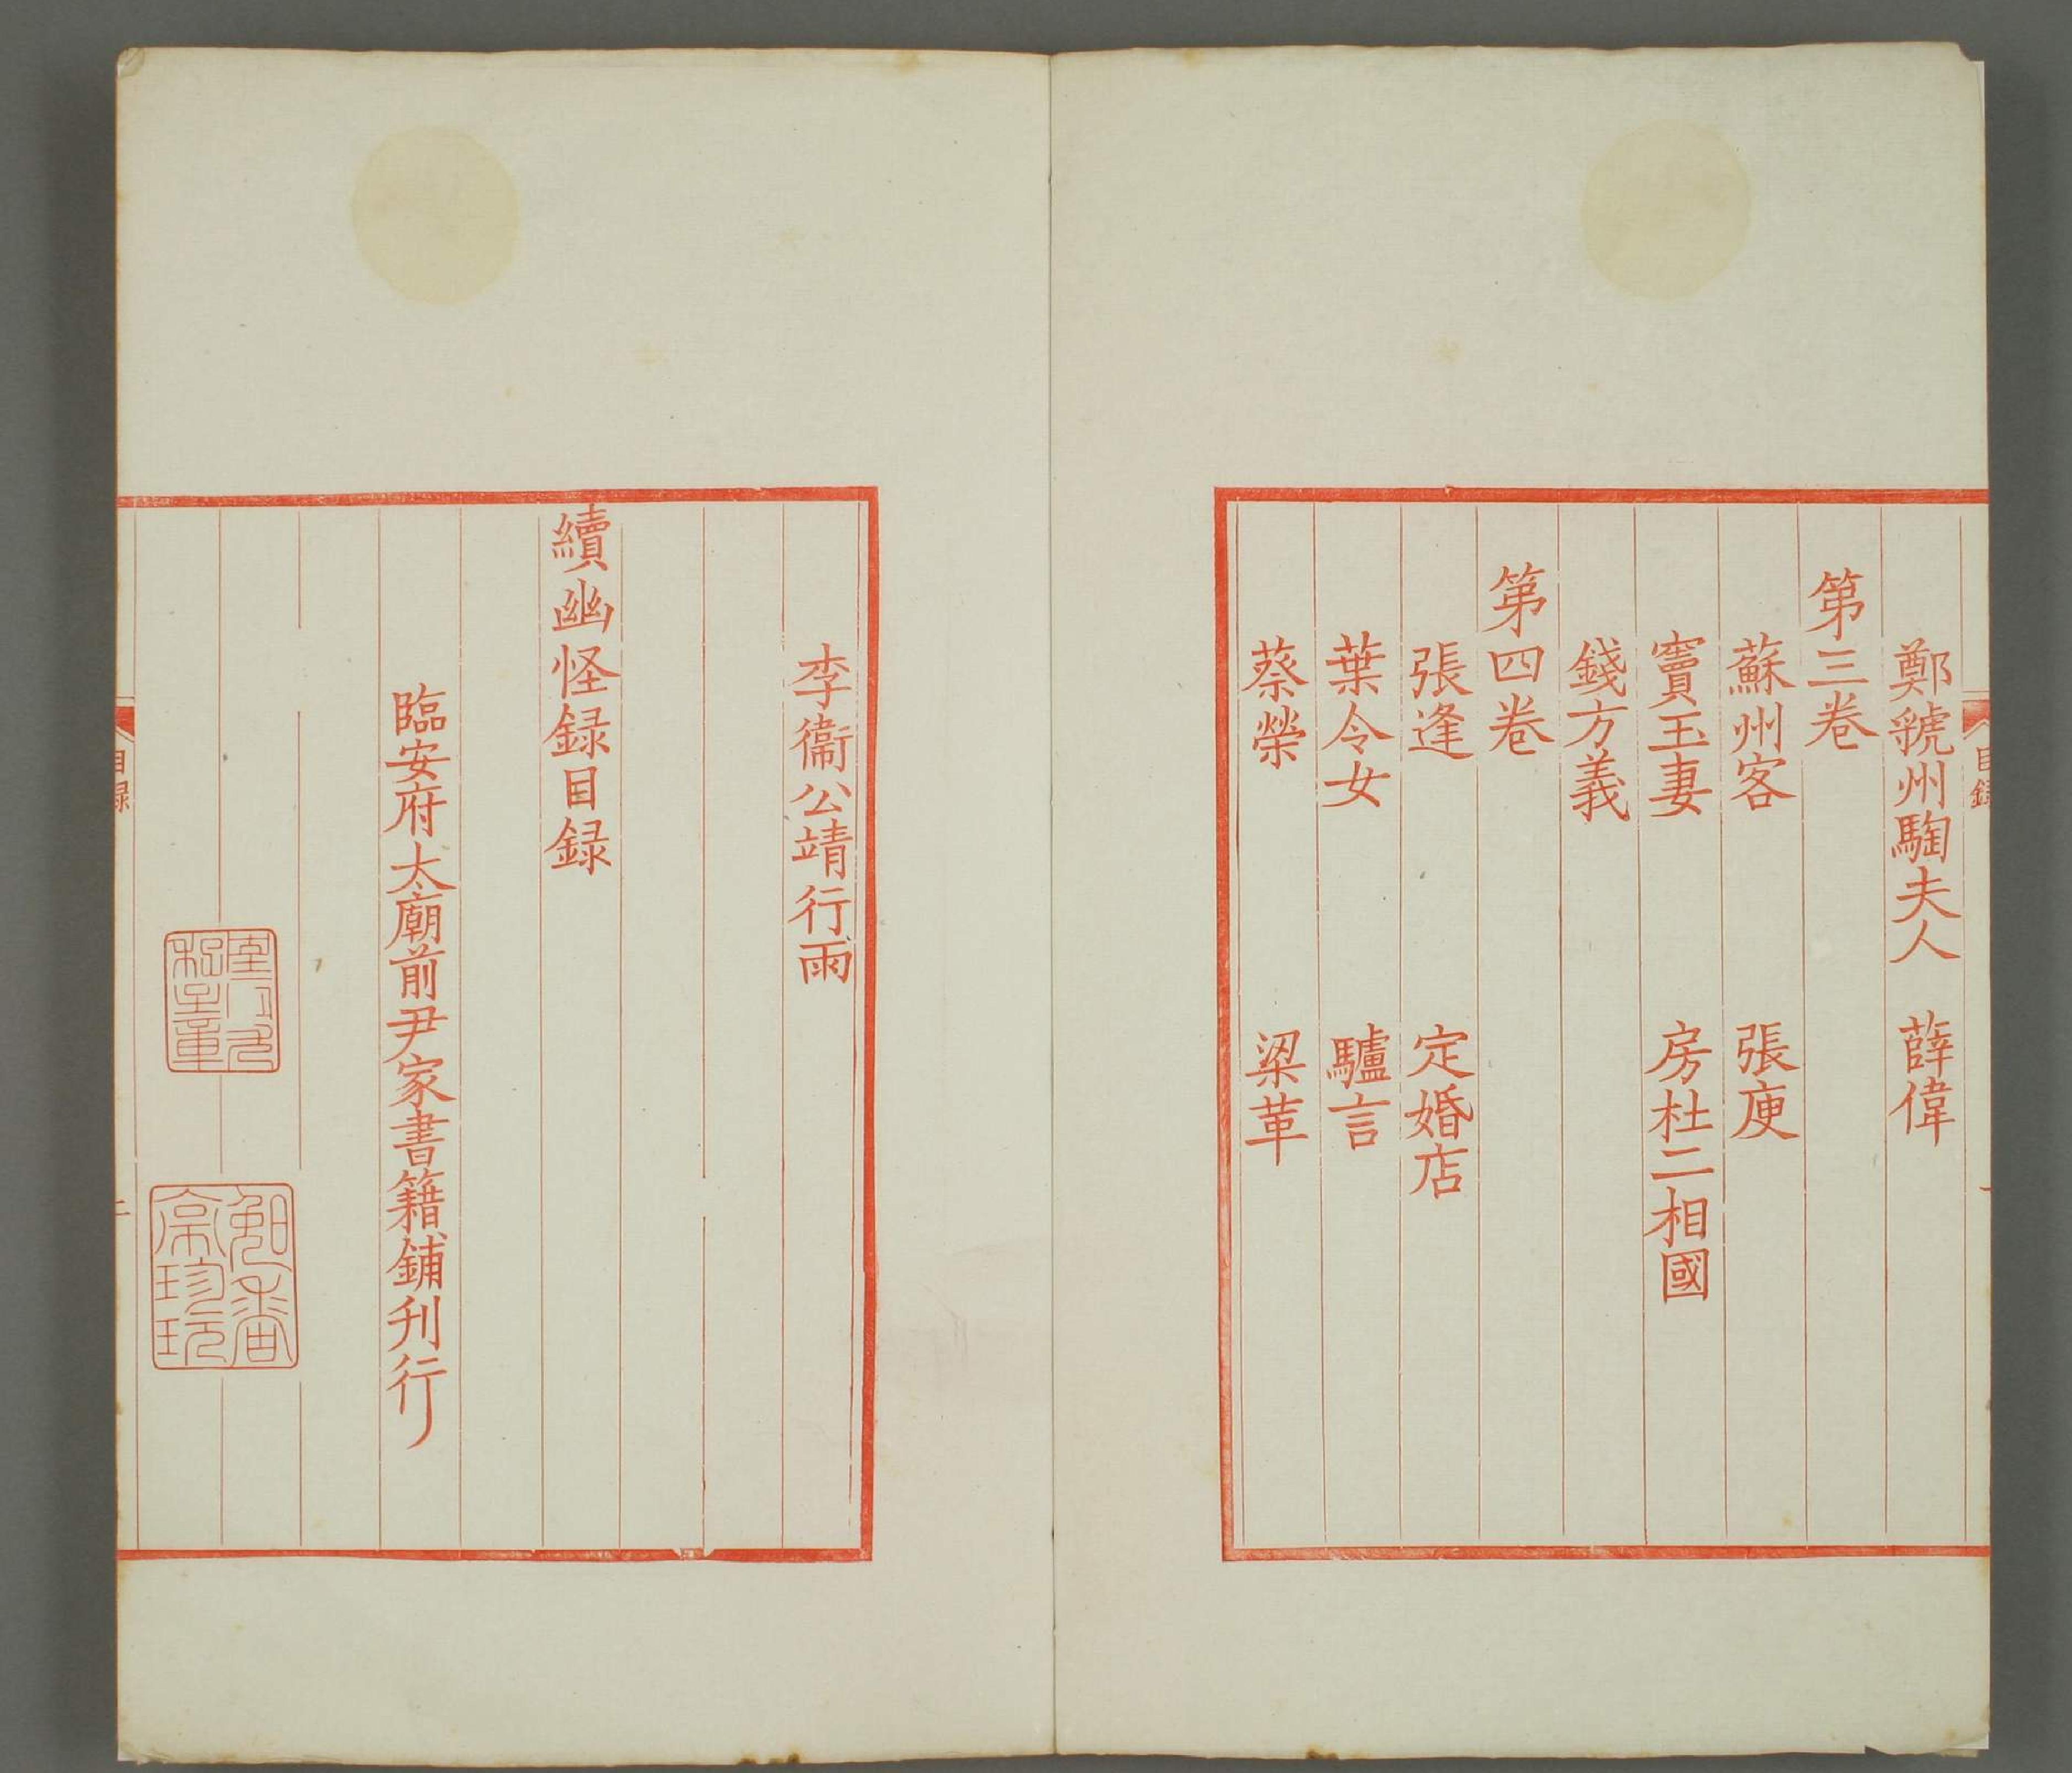 目錄
鄭虢州騊夫人 薛偉
第三卷
蘇州客 張庾
竇玉妻 房杜二相國
錢方義
第四卷
張逢 定婚店
葉令女 驢言
蔡榮 梁革
李衞公靖行雨
續幽怪録目録
臨安府太廟前尹家書籍鋪刋行
目録
二